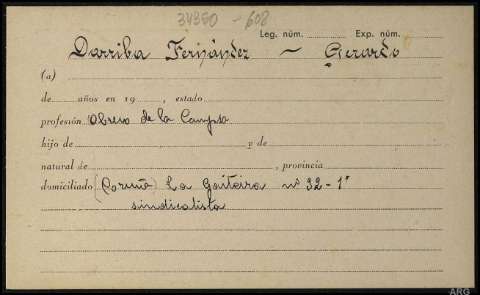 34350 - 602
Leg. núm. Exp. núm.
Darriba Fernández - Gerardo
(a)
de años en 19 , estado
profesión Obrero de la Campsa
hijo de y de
natural de , provincia
domiciliado (Coruña) La Gaiteira nº 32-1º
sindicalista
ARG